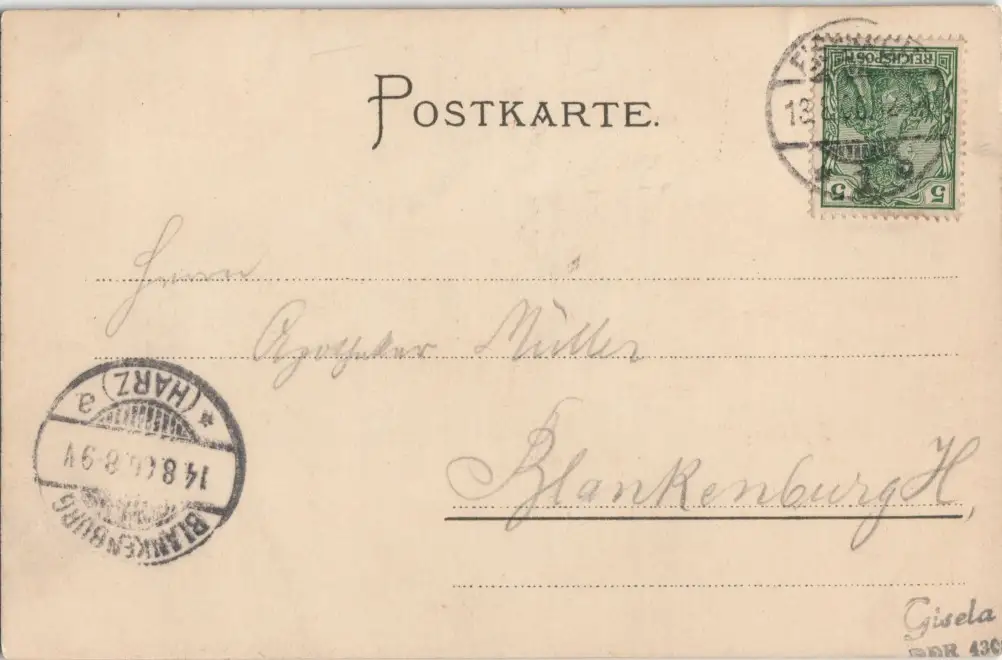 POSTKARTE.
REICHSPOST
5 5
Herrn
Apotheker Müller
Blankenburg H,
BLANKENBURG
14.8.00. 8-9V
* (HARZ) a.
Gisela
DDR 430